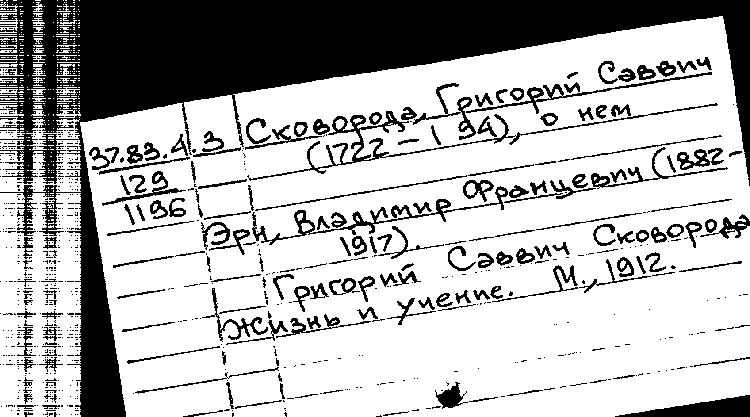 37.83.4.3 Сковорода, Григорий Саввич
129 (1722 – 1 94), о нем
1196
Эрн, Владимир Францевич (1882–
1917).
Григорий Саввич Сковорода
Жизнь и учение. М., 1912.